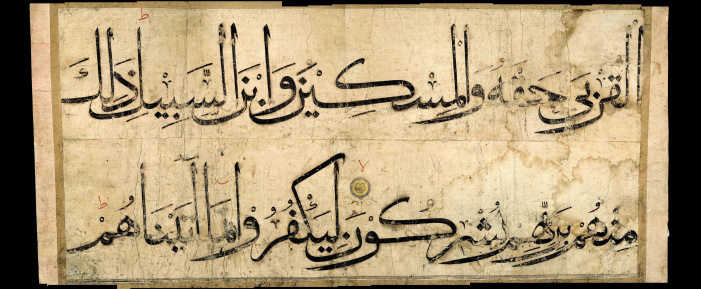 الْقُرْبَى حَقَّهُ وَالْمِسْكِينَ وَابْنَ السَّبِيلِ ذَلِكَ
مِنْهُمْ بِرَبِّهِمْ يُشْرِكُونَ لِيَكْفُرُوا بِمَا آتَيْنَاهُمْ